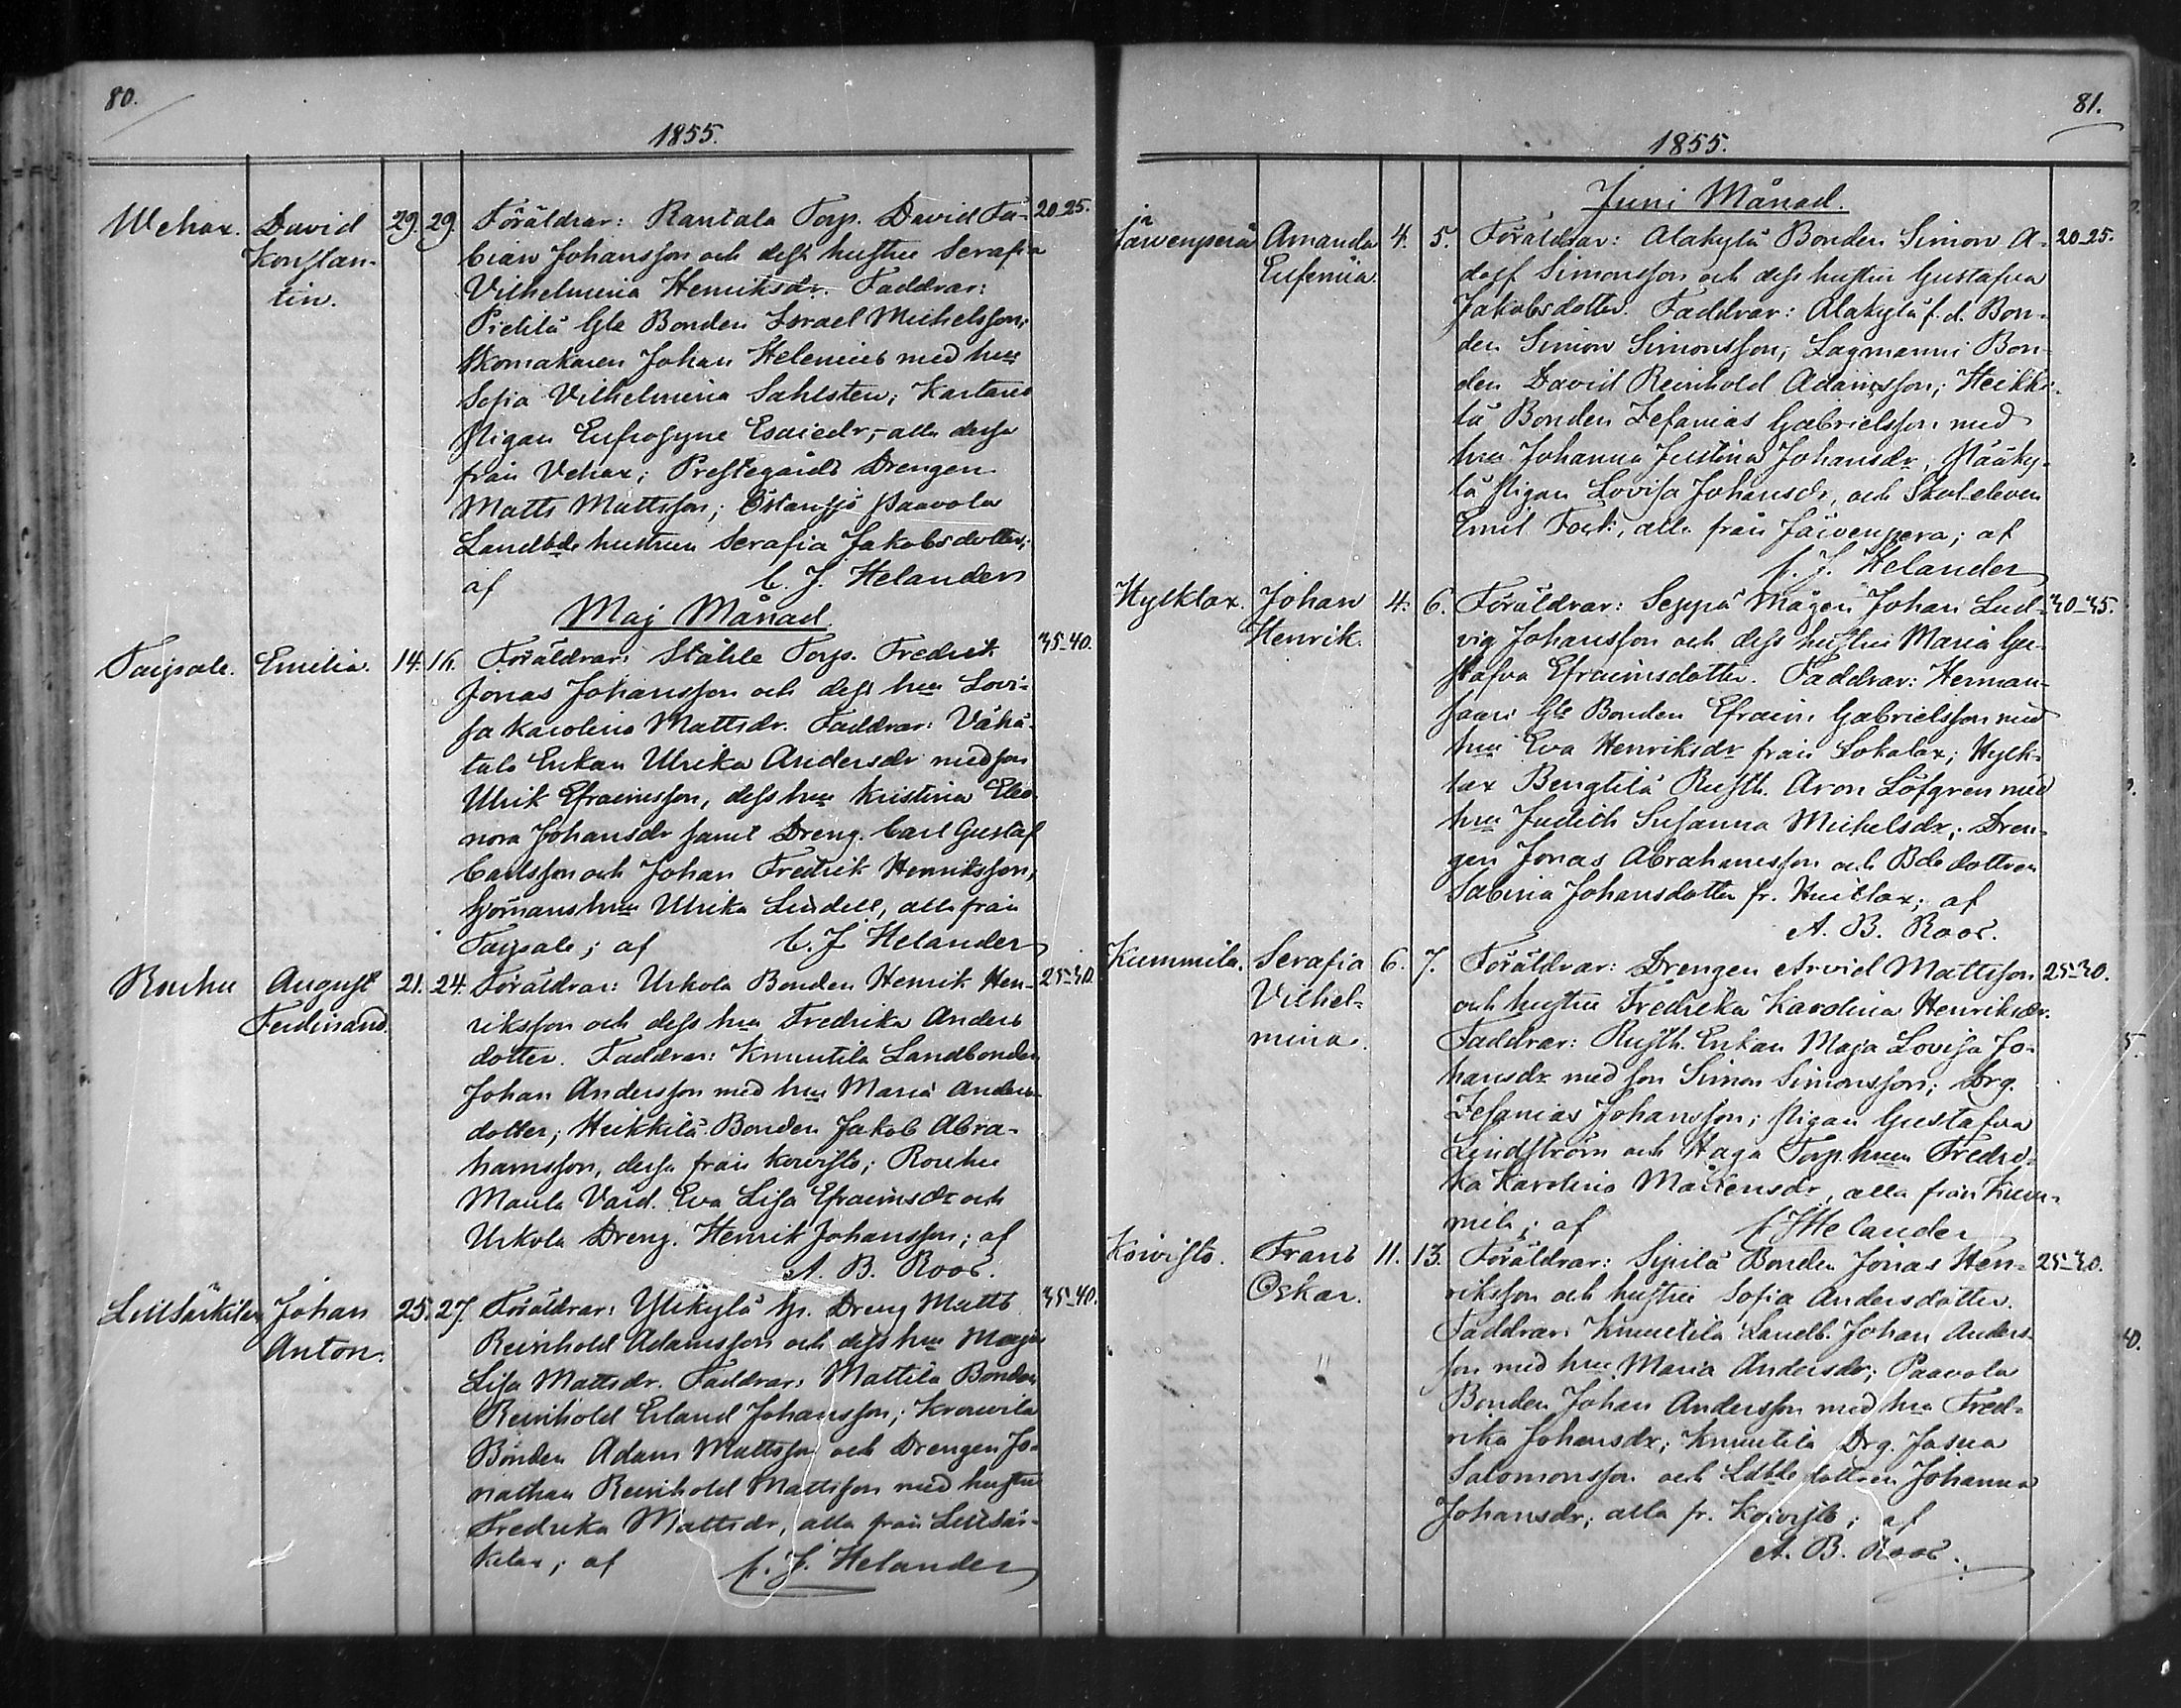 80.
1855.
Wehax. David 29. 29. Föräldrar: Rantala Torp. David Fa- 20-25.
Konstan- bian Johansson och dess hustru Serafia
tin. Vilhelmina Henriksdr. Faddrar:
Pietilä Gle Bonden Israel Michelsson,
Skomakaren Johan Helenius med hu
Sofia Vilhelmina Sahlsten; Kartano
Pigan Eufrosyne Esaiedr, - alla dessa
från Vehax; Prestegårds Drengen
Matts Mattsson; Östansjö Paavola
Landbde hustrun Serafia Jakobsdotter;
af C. J. Helander
Maj Månad.
Taipale. Emilia. 14. 16. Föräldrar: Ståhle Torp. Fredrik 35-40.
Jonas Johansson och dess hu Lovi-
sa Karolina Mattsdr. Faddrar: Vähä-
talo Enkan Ulrika Andersdr med son
Ulrik Efraimsson, dess hu Kristina Eleo-
nora Johansdr samt Dreng. Carl Gustaf
Carlsson och Johan Fredrik Henriksson,
Sjömans hu Ulrika Lindell, alla från
Taipale; af C. J. Helander
Rouhu August 21. 24. Föräldrar: Urkola Bonden Henrik Hen- 25-30.
Ferdinand. riksson och dess hu Fredrika Anders
dotter. Faddrar: Knuutila Landbonden
Johan Andersson med hu Maria Anders-
dotter; Heikkilä Bonden Jakob Abra-
hamsson, dessa från Koivisto; Rouhu
Maula Värd. Eva Lisa Efraimsdr och
Urkola Dreng. Henrik Johansson; af
A. B. Roos.
Lillsärkilax Johan 25. 27. Föräldrar: Ylikylä Dreng Matts 35-40.
Anton. Reinhold Adamsson och dess hu Maja
Lisa Mattsdr. Faddrar: Mattila Bonden
Reinhold Erland Johansson; Krouvila
Bonden Adam Mattsson och Drengen Jo-
nathan Reinhold Mattsson med hustru
Fredrika Mattsdr, alla från Lillsär-
kilax; af C. J. Helander
81.
1855.
Juni Månad.
Järvenperä Amanda 4. 5. Föräldrar: Alakylä Bonden Simon A- 20-25.
Eufemia. dolf Simonsson och dess hustru Gustafva
Jakobsdotter. Faddrar: Alakylä f. d. Bon-
den Simon Simonsson; Lagmanni Bon-
den David Reinhold Adamsson; Heikki-
lä Bonden Zefanias Gabrielsson med
hu Johanna Justina Johansdr, Pääky-
lä Pigan Lovisa Johansdr, och Skol eleven
Emil Fork, alla från Järvenpera; af
C. J. Helander
Hylklax. Johan 4. 6. Föräldrar: Seppä Mågen Johan Lud- 30-35.
Henrik. vig Johansson och dess hustru Maria Gu-
stafva Efraimsdotter. Faddrar: Herman-
saari Gle Bonden Efraim Gabrielsson med
hu Eva Henriksdr från Lokalax; Hylk-
lax Bengtilä Rusth. Aron Löfgren med
hu Judith Susanna Michelsdr; Dren-
gen Jonas Abrahamsson och Bde dottren
Sabina Johansdotter fr. Huitlax; af
A. B. Roos.
Kummila. Serafia 6. 7. Föräldrar: Drengen Arvid Mattsson 25-30.
Vilhel- och hustru Fredrika Karolina Henriksdr.
mina. Faddrar: Rusth. Enkan Maja Lovisa Jo-
hansdr med son Simon Simonsson; Drg.
Zefanias Johansson; Pigan Gustafva
Lindström och Haga Torp. hun Fredri-
ka Karolina Mårtensdr, alla från Kum-
mila; af C. J. Helander
Koivisto. Frans 11. 13. Föräldrar: Sipilä Bonden Jonas Hen- 25-30.
Oskar. riksson och hustru Sofia Andersdotter.
Faddrar: Knuutila Landb. Johan Anders-
son med hu Maria Andersdr; Paavola
Bonden Johan Andersson med hu Fred-
rika Johansdr; Knuutila Drg. Josua
Salomonsson och Ldbde dottren Johanna
Johansdr; alla fr. Koivisto; af
A. B. Roos.